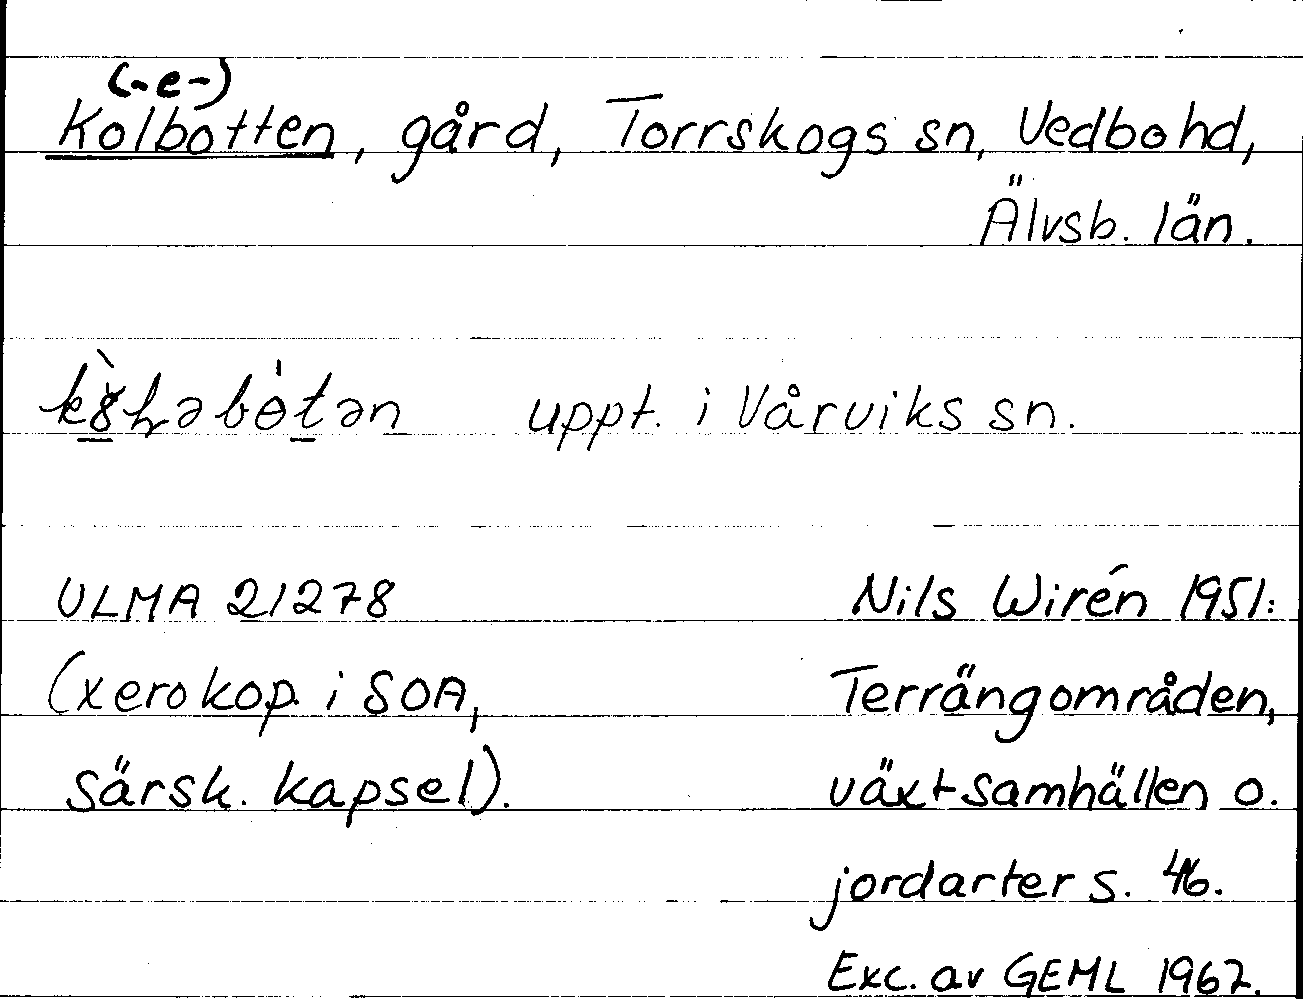 (-e-)
Kolbotten, gård, Torrskogs sn, Vedbo hd,
Älvsb. län.
uppt. i Vårviks sn.
ULMA 21278
Nils Wirén 1951:
(xerokop. i SOA,
Terrängområden,
särsk. kapsel).
växtsamhällen o.
jordarter s. 46.
Exc. av GEML 1967.